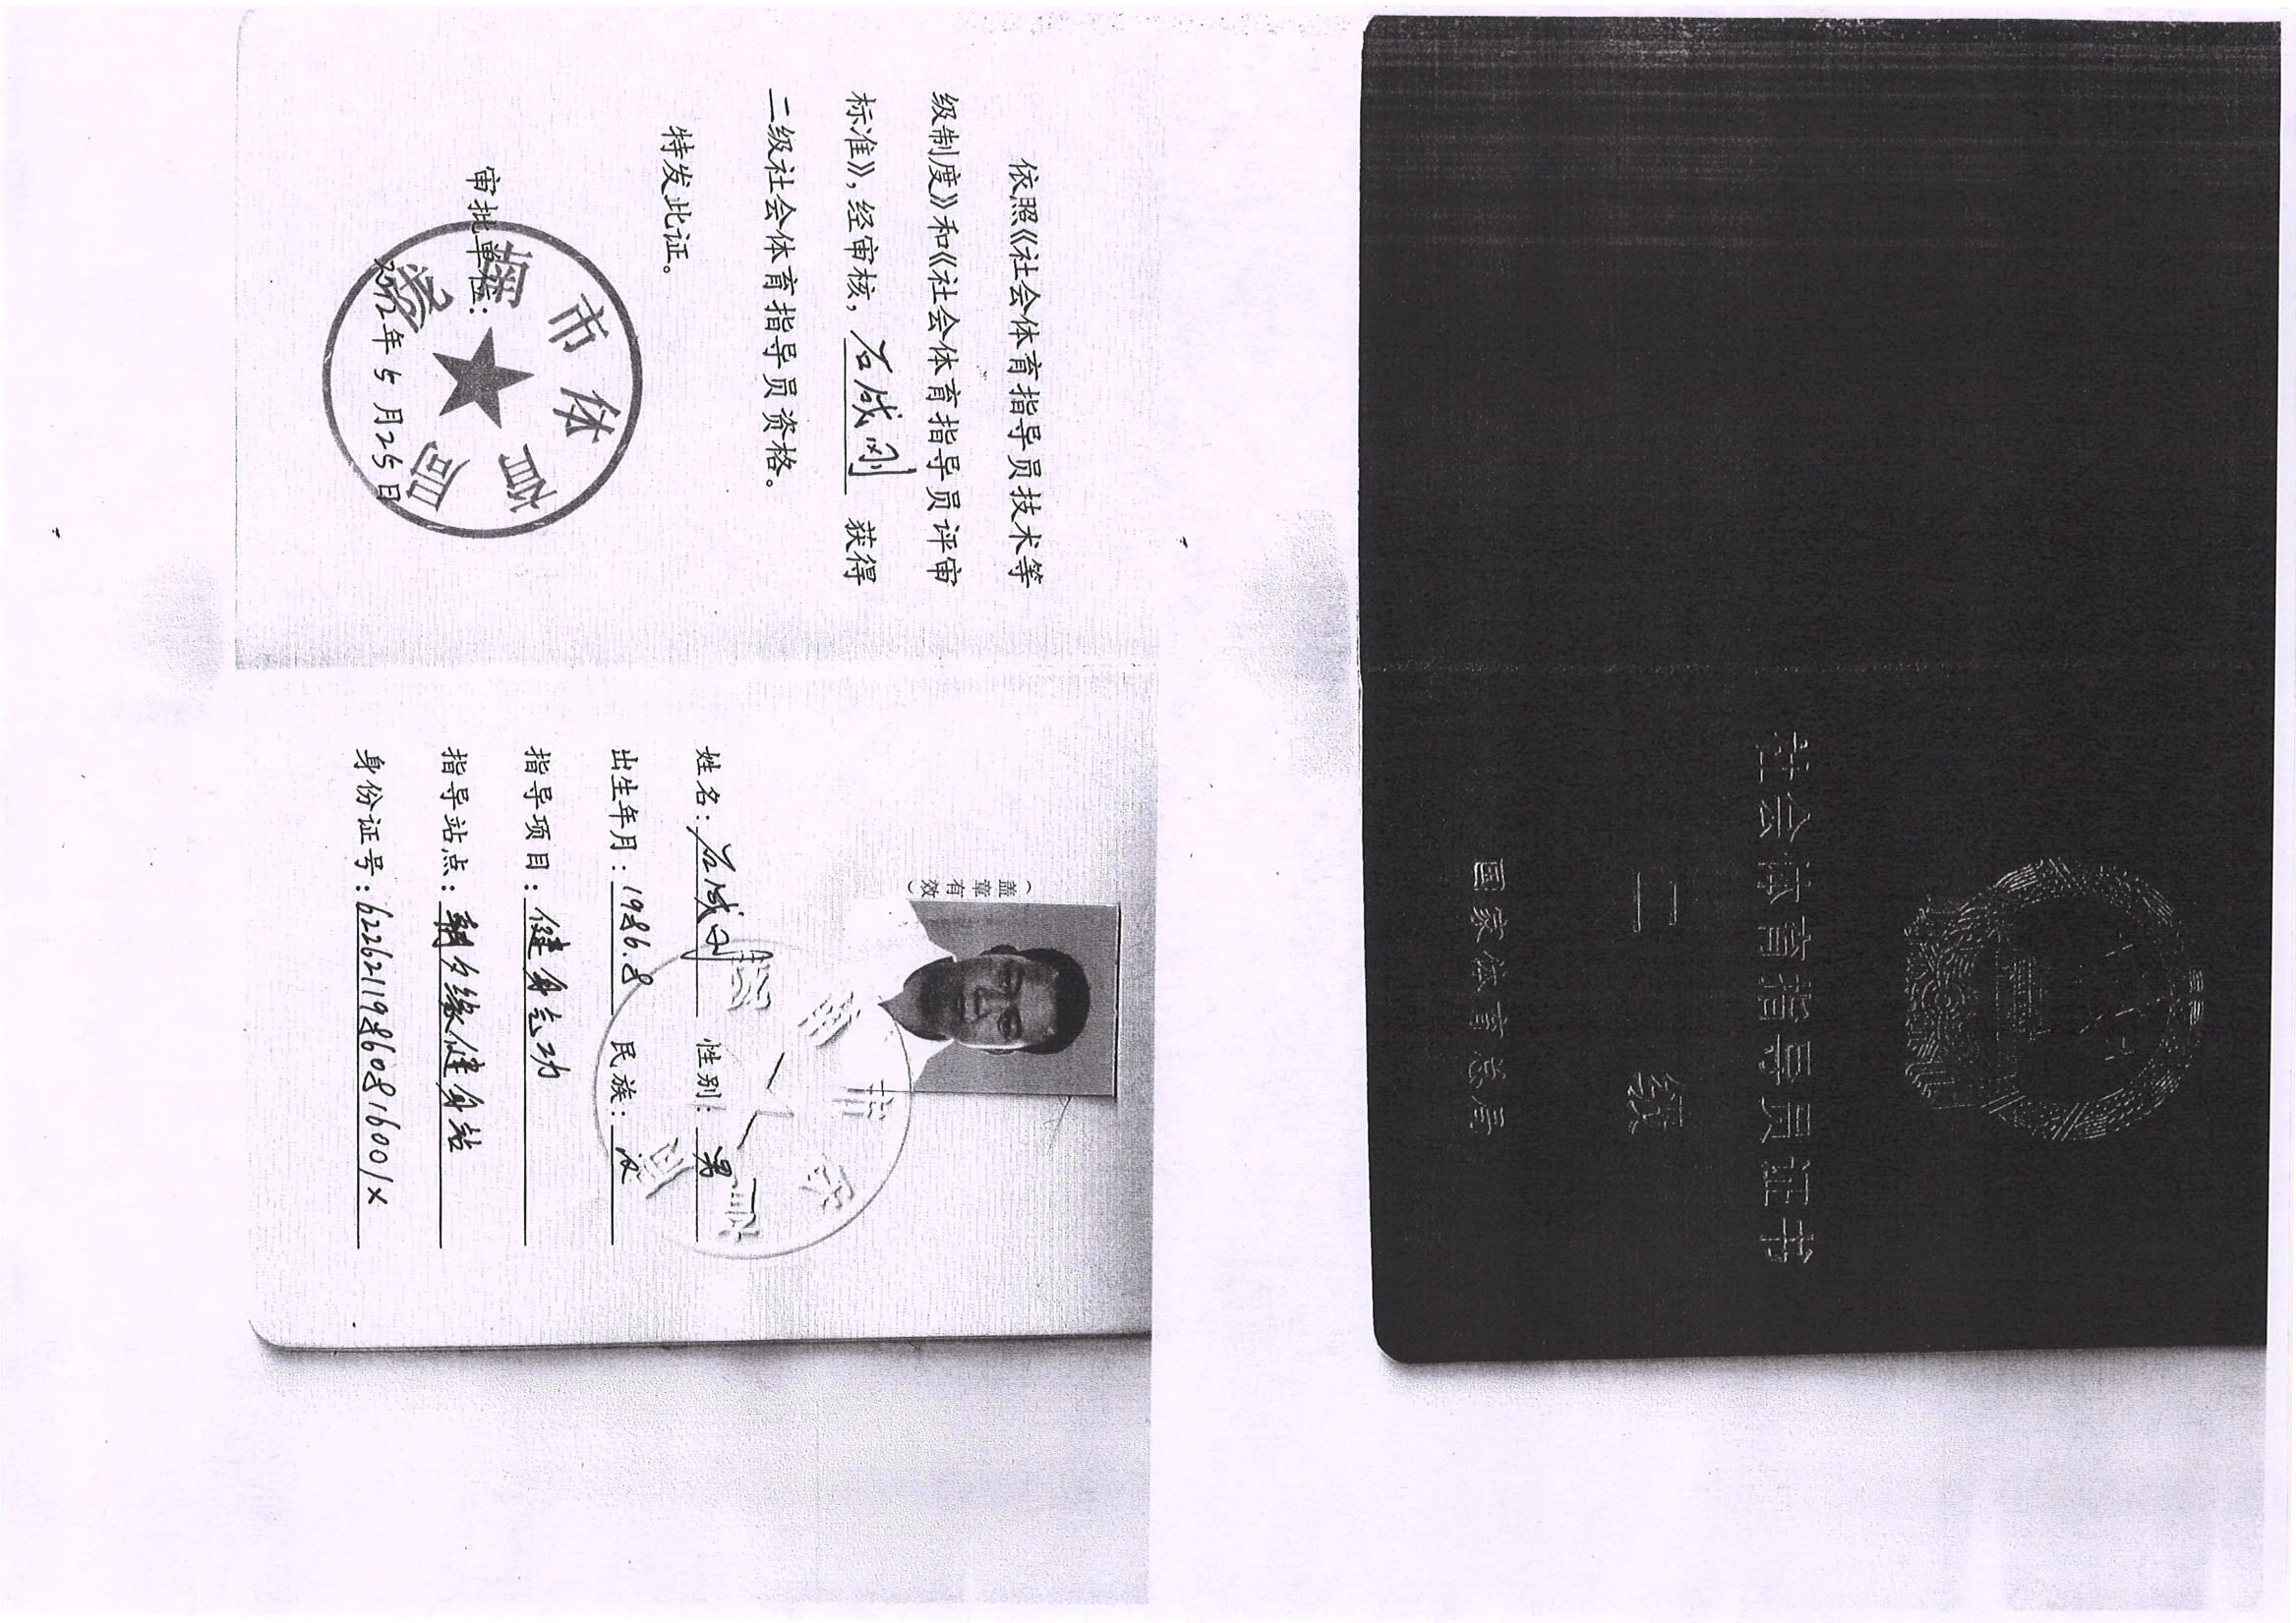 社会体育指导员证书
二 级
国家体育总局
依照《社会体育指导员技术等
级制度》和《社会体育指导员评审
标准》，经审核，石成刚 获得
二级社会体育指导员资格。
特发此证。
审批单位：
陇南市体育局
2012年5月25日
（盖章有效）
陇南市体育局
姓名：石成刚 性别：男
出生年月：1986.8 民族：汉
指导项目：健身气功
指导站点：朝夕缘健身站
身份证号：62262119860816001X